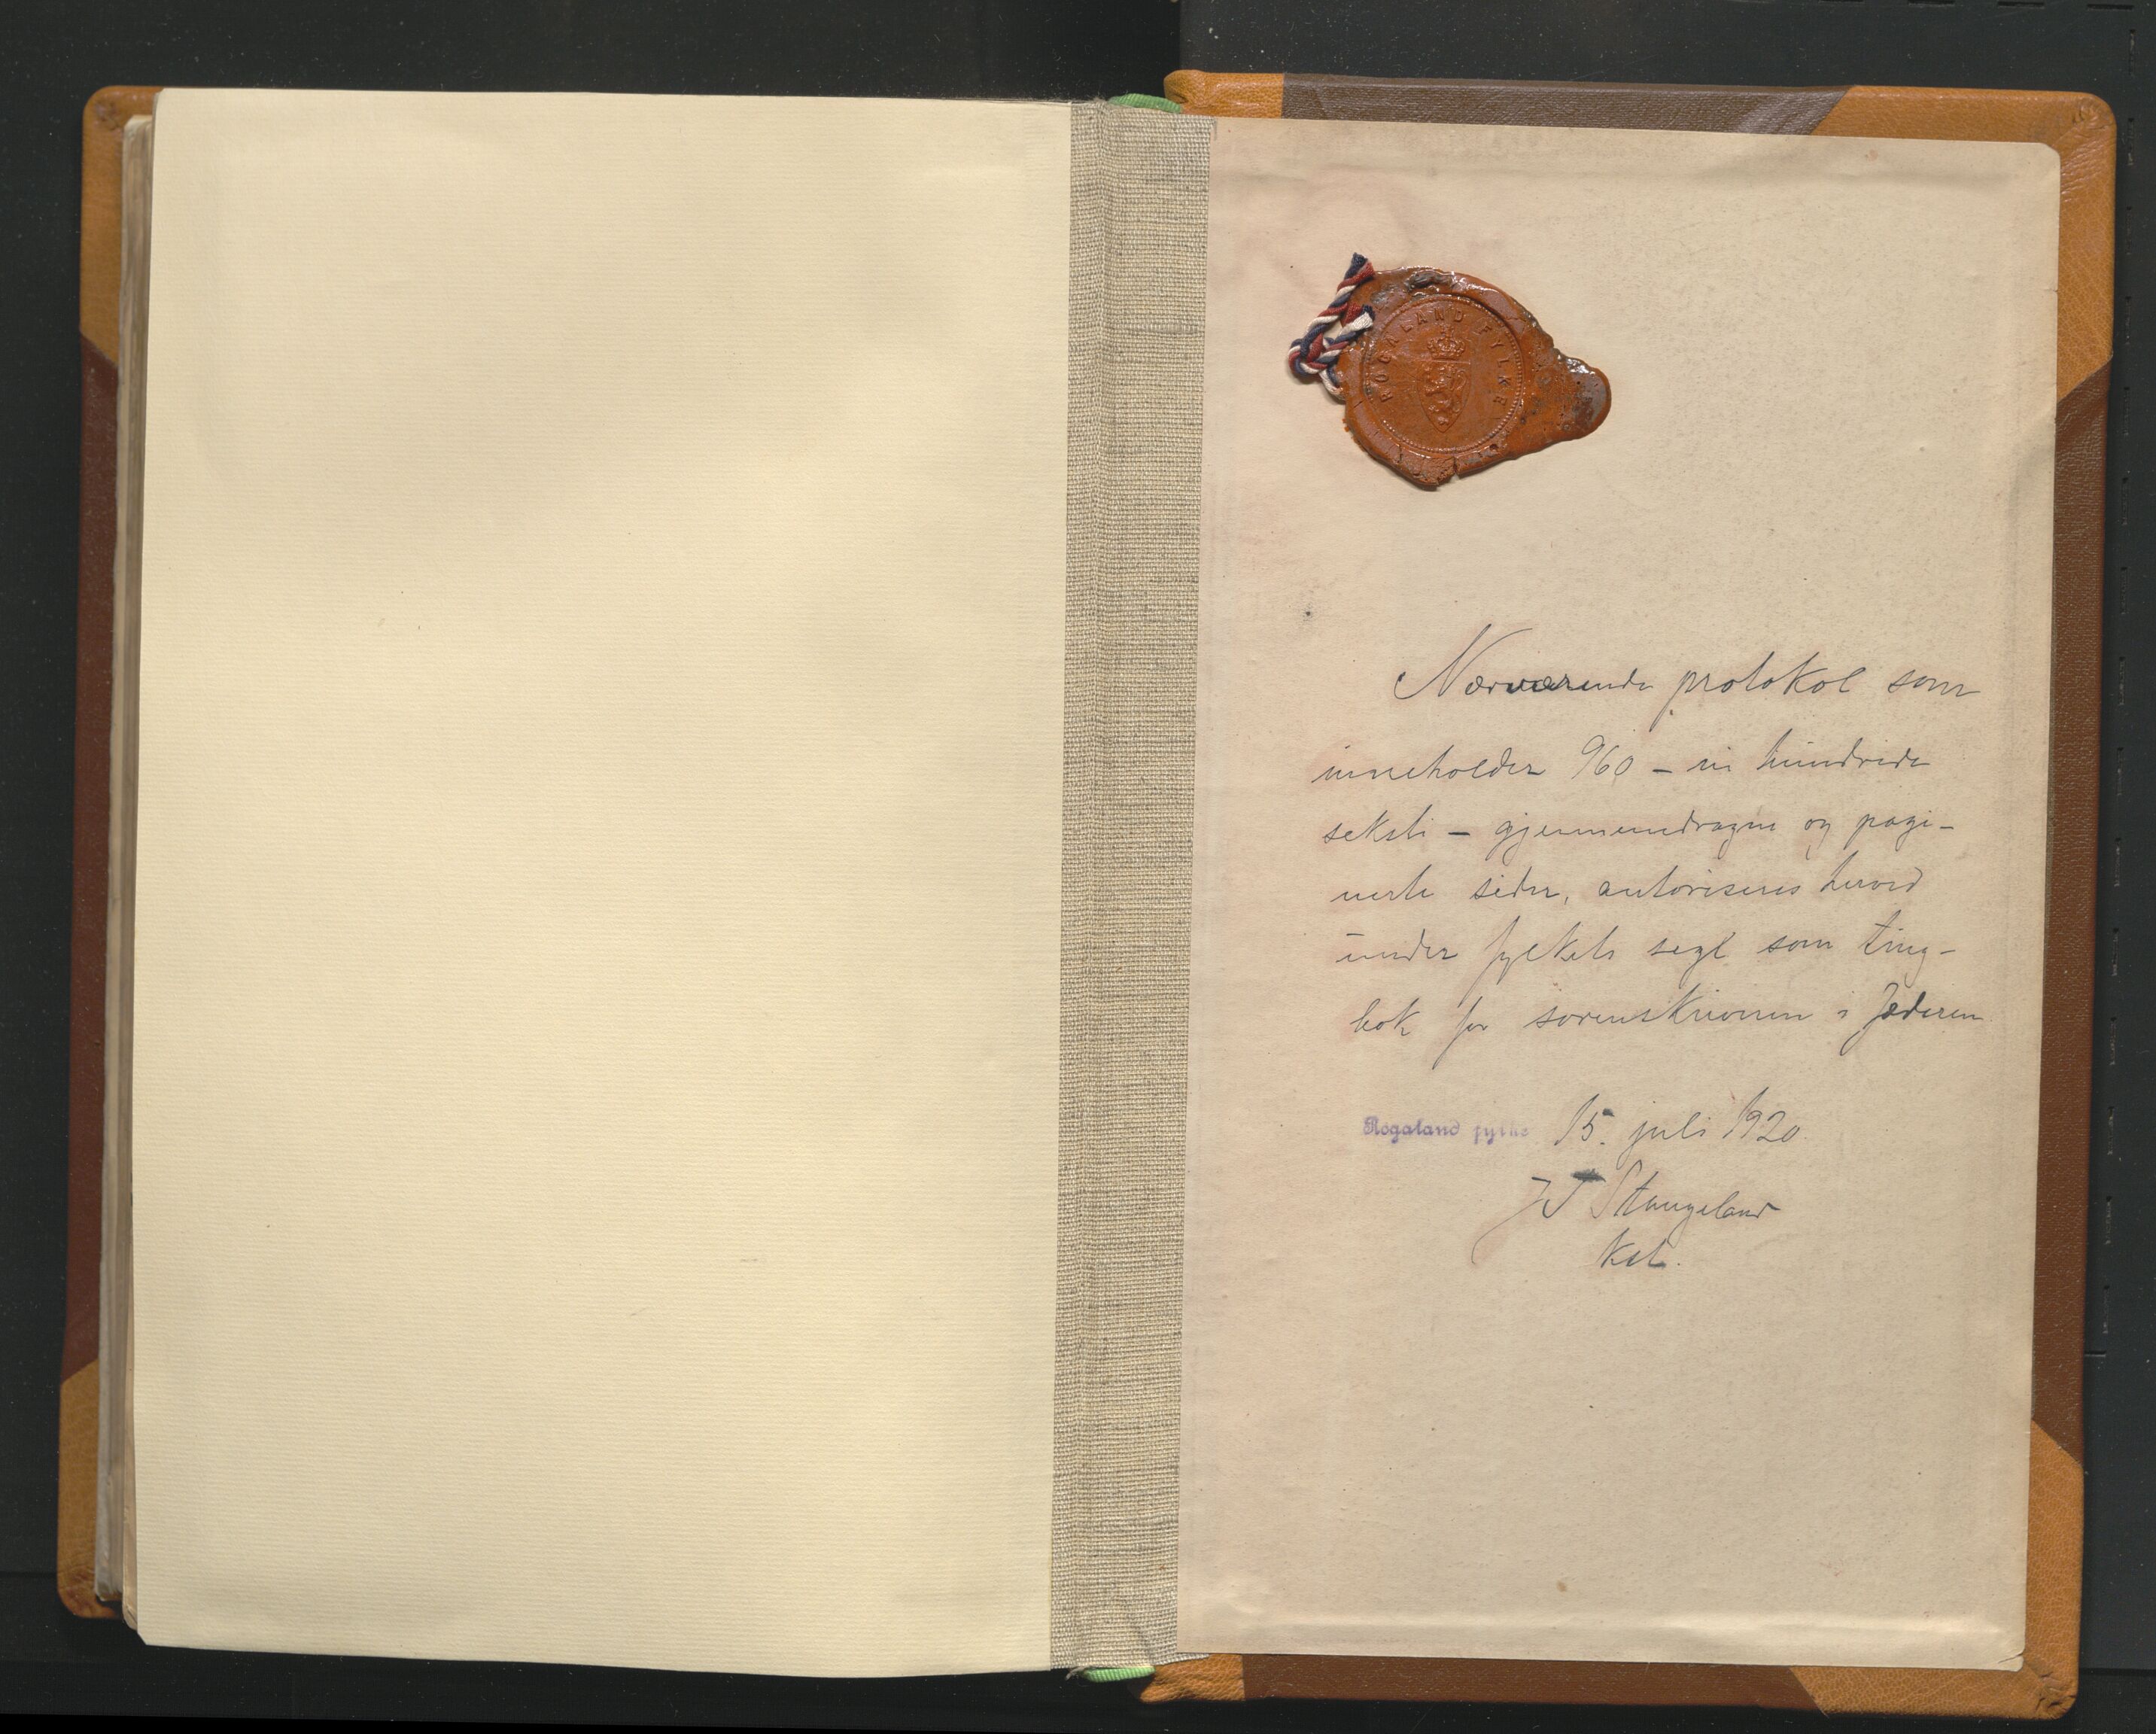 ROGALAND FYLKE
Nærværende protokol som
inneholder 960 – ni hundrede
seksti – gjennemdragne og pagi-
nerte sider, autoriseres herved
under fylkets segl som ting-
bok for sorenskriveren i Jæderen
Rogaland fylke 15. juli 1920.
Stangeland
kst.